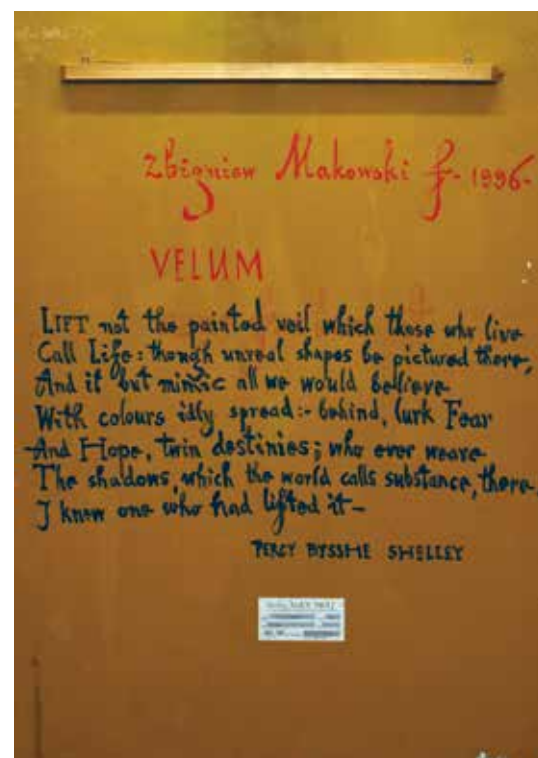 Zbigniew Makowski f- 1996-
VELUM
LIFT not the painted veil which those who live
Call Life: though unreal shapes be pictured there,
And it but mimic all we would believe
With colours idly spread:- behind, lurk Fear
And Hope, twin destinies; who ever weave
The shadows, which the world calls substance, there.
I knew one who had lifted it-
PERCY BYSSHE SHELLEY